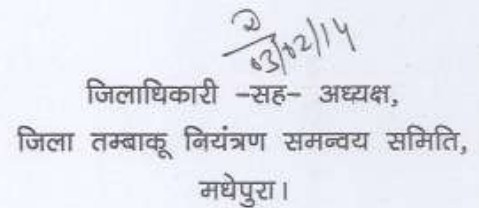 03/02/14
जिलाधिकारी -सह- अध्यक्ष,
जिला तम्बाकू नियंत्रण समन्वय समिति,
मधेपुरा।